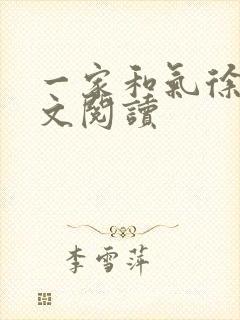 一家和氣徐
文閱讀
李雪萍